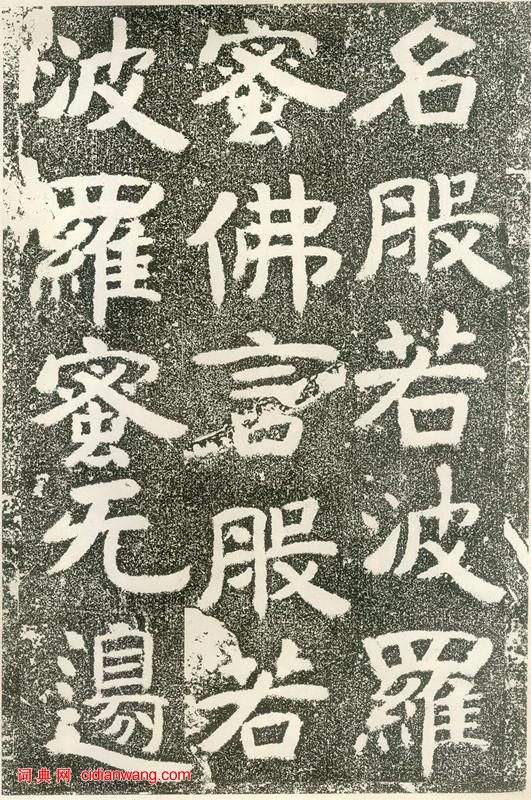 名般若波羅
蜜佛言般若
波羅蜜无邊
词典网 cidianwang.com